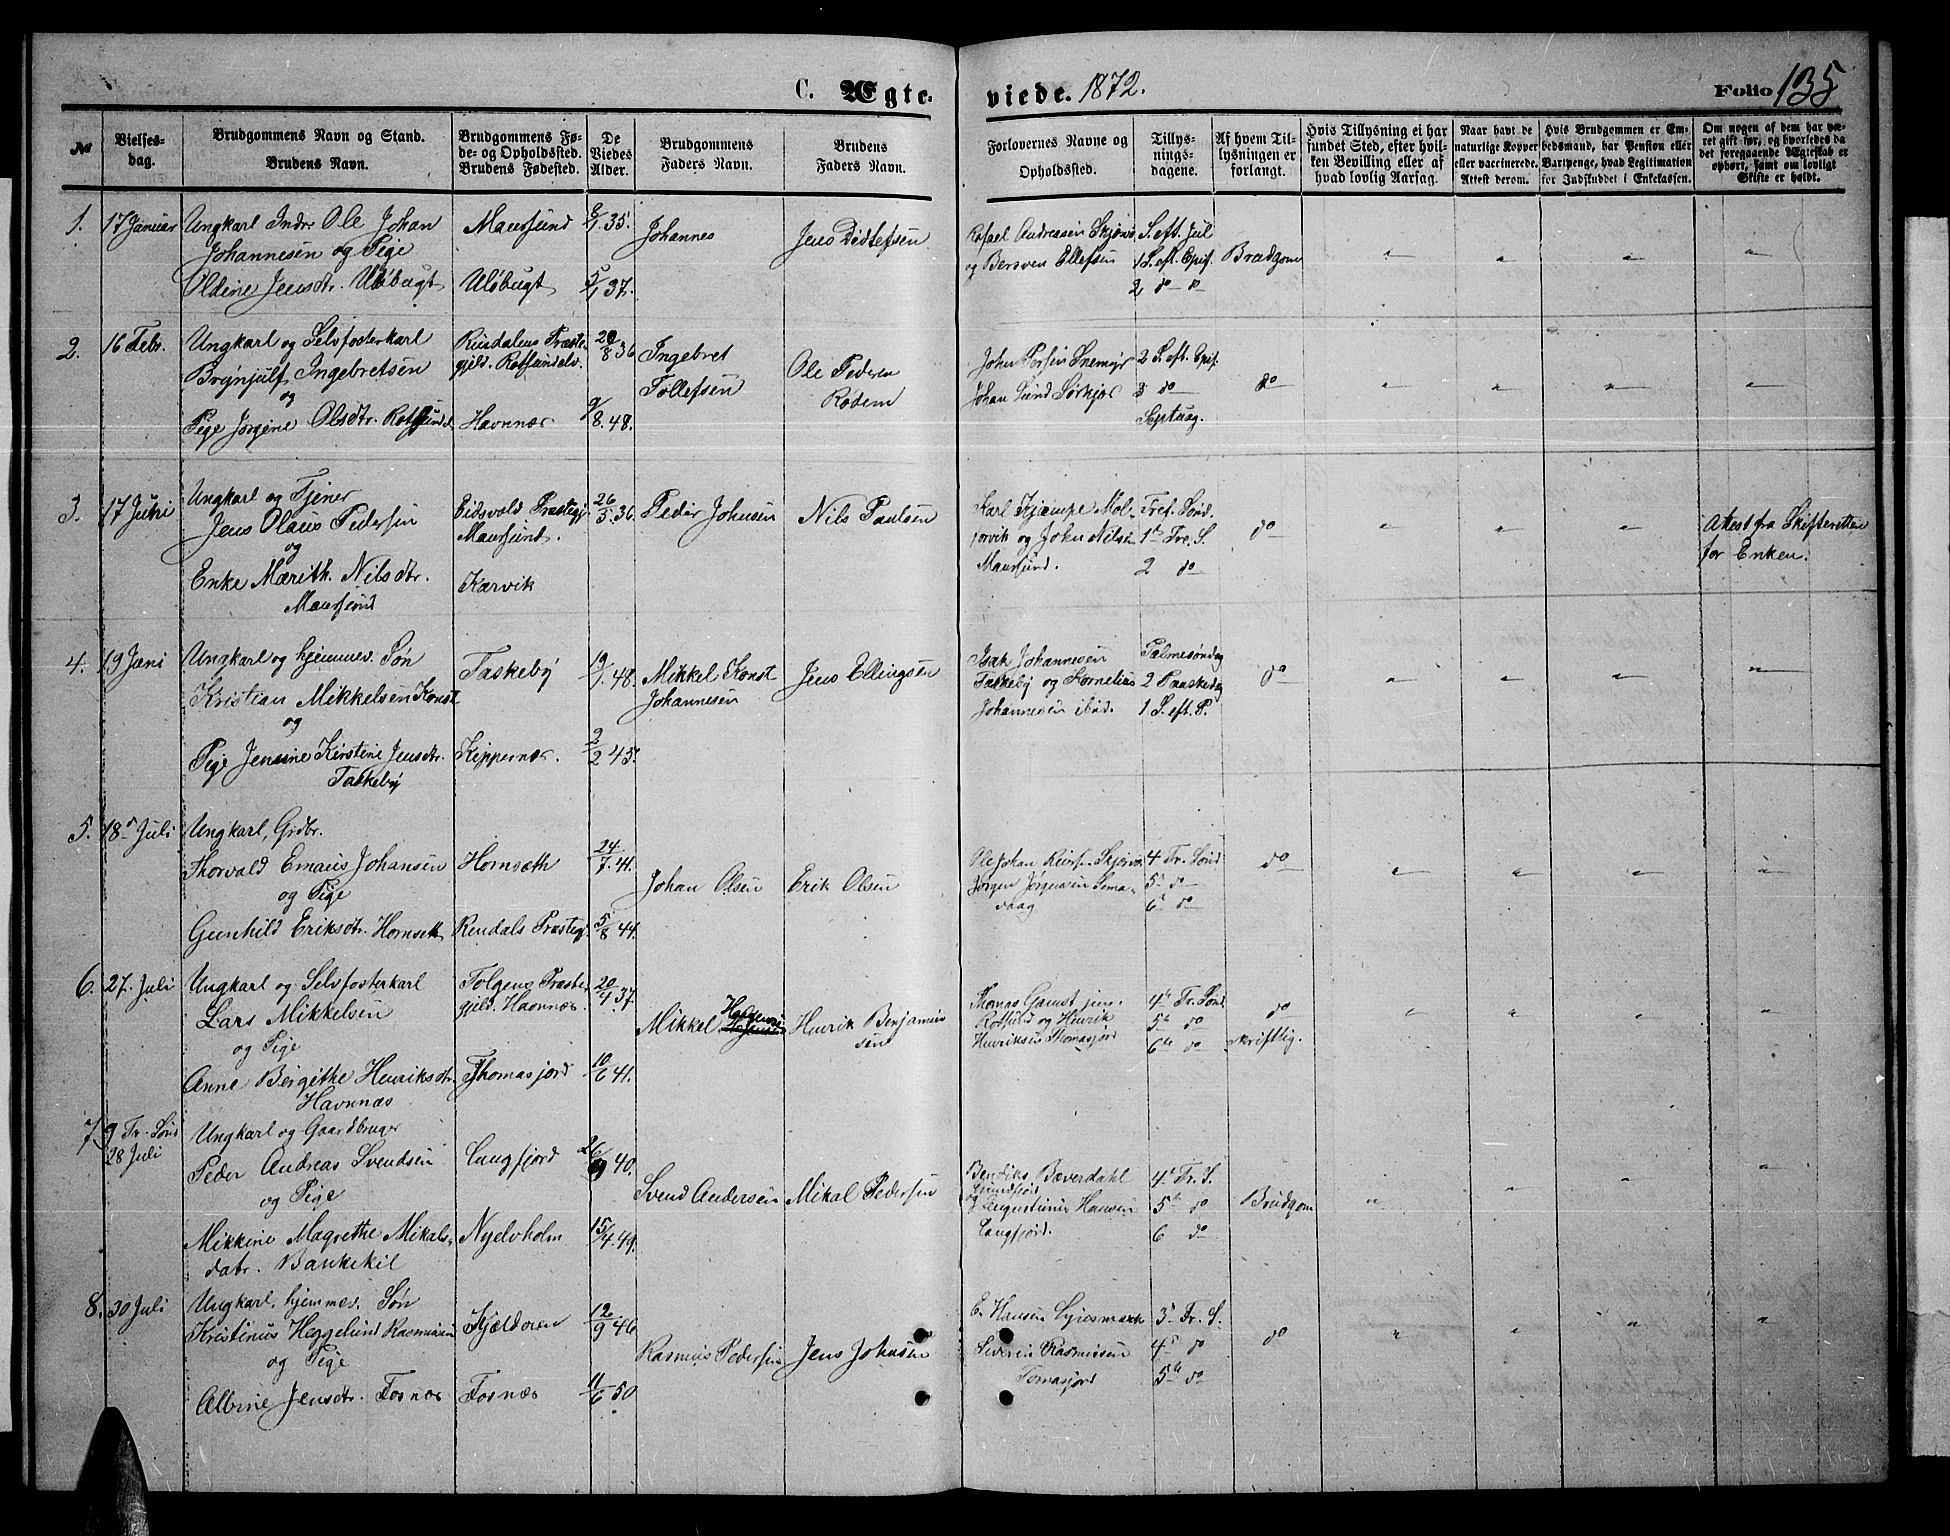 C. Ægte-
viede. 1872.
Folio 135
№
Vielses-
dag.
Brudgommens Navn og Stand.
Brudens Navn.
Brudgommens Fø-
de- og Opholdssted.
Brudens Fødested.
De
Viedes
Alder.
Brudgommens
Faders Navn.
Brudens
Faders Navn.
Forlovernes Navne og
Opholdssted.
Tillys-
nings-
dagene.
Af hvem Til-
lysningen er
forlangt.
Hvis Tillysning ei har
fundet Sted, efter hvil-
ken Bevilling eller af
hvad lovlig Aarsag.
Naar havt de
naturlige Kopper
eller vaccinerede.
Attest derom.
Hvis Brudgommen er Em-
bedsmand, har Pension eller
Vartpenge, hvad Legitimation
for Indskuddet i Enkekassen.
Om nogen af dem har væ-
ret gift før, og hvorledes da
det foregaaende Ægteskab er
ophørt, samt om lovligt
Skifte er holdt.
1. 17 Januar
Ungkarl Indr. Ole Johan
Johannesen og Pige
Oldine Jensdtr. Ulsbugt
Maursund
Ulsbugt
2/1 35.
5/1 37.
Johannes
Jens Didlefsen
Rafael Andreasen Skjervø
og Bersven Ellefsen
S. eft. Jul
1 S. eft. Epif.
2 do
Brudgom
2. 16 Febr.
Ungkarl og Selvfosterkarl
Brynjulf Ingebretsen
og
Pige Jørgine Olsdtr. Rotsund
Rindalens Præste-
gjeld. Rotsundelv.
Havnnæs
20/8 36
9/8 48.
Ingebret
Tollefsen
Ole Pedersen
Rodem
Johan
2 S. eft. Epif.
3 do
Septuag.
do
3. 17 Juni
Ungkarl og Tjener
Jens Olaus Pedersen
og
Enke Marith. Nilsdtr.
Maursund
Eidsvold Præstegj.
Maursund.
Karvik
26/5 36.
Peder Johnsen
Nils Paulsen
Karl Kjempe Mol-
jorvik og John Nilsen
Maursund.
Tref. Sønd.
1ste Tre. S.
2 do
do
Attest fra Skifteretten
for Enken.
4. 19 Juni
Ungkarl og hjemmev. Søn
Kristian Mikkelsen Konst
og
Pige Jensine Kirstine Jensdtr.
Taskeby
Taskeby
Kippernæs.
19/1 48.
2/2 45.
Mikkel Konst
Johannesen
Jens Ellingsen
Isak Johannesen
Taskeby og Kornelius
Johannesen ibid.
Palmesøndag
2 Paaskedag
1 S. eft. P.
do
5. 18de Juli
Ungkarl, Grdbr.
Thorvald Emaus Johansen
og Pige
Gunhild Eriksdtr. Hamseth
Hamsæth
Rendals Præstegj.
24/7 41.
5/8 44.
Johan Olsen
Erik Olsen
Ole Johan Skjervø
Jørgen Jørgensen
vaag
4 Tr. Sønd.
5te do
6te do
do
6. 27. Juli
Ungkarl og Selvfosterkarl
Lars Mikkelsen
og Pige
Anne Bergithe Henriksdtr.
Havnnæs
Tolgens Præste-
gjeld. Havnnæs.
Thomasjord
20/4 37.
10/6 41.
Mikkel
Henrik Benjamin
sen
Thomas Gamst jun.
Rotsund og Henrik
Henriksen Thomasjord
4de Tr. Sønd.
5te do
6te do
do
skriftlig.
7. 9 Tr. Sønd
28 Juli
Ungkarl og Gaardbruger
Peder Andreas Svendsen
og Pige
Mikkine Magrethe Mikals-
datr. Bankekil
Langfjord
Nyelvholm
26/9 40.
15/4 49.
Svend Andersen
Mikal Pedersen
Bendiks Bæverdahl
og Augustinus Hansen
Langfjord.
4de Tr. S.
5te do
6 do
Brudgom
8. 30 Juli
Ungkarl, hjemmev. Søn
Kristinus Heggelund Rasmussen
og Pige
Albine Jensdtr. Fosnæs
Kjelderen
Fosnæs
12/9 46
11/6 50
Rasmus Pedersen
Jens Johnsen
E. Hansen
Severin Rasmussen
Tomasjord
3de Tr. S.
4de do
5te do
do